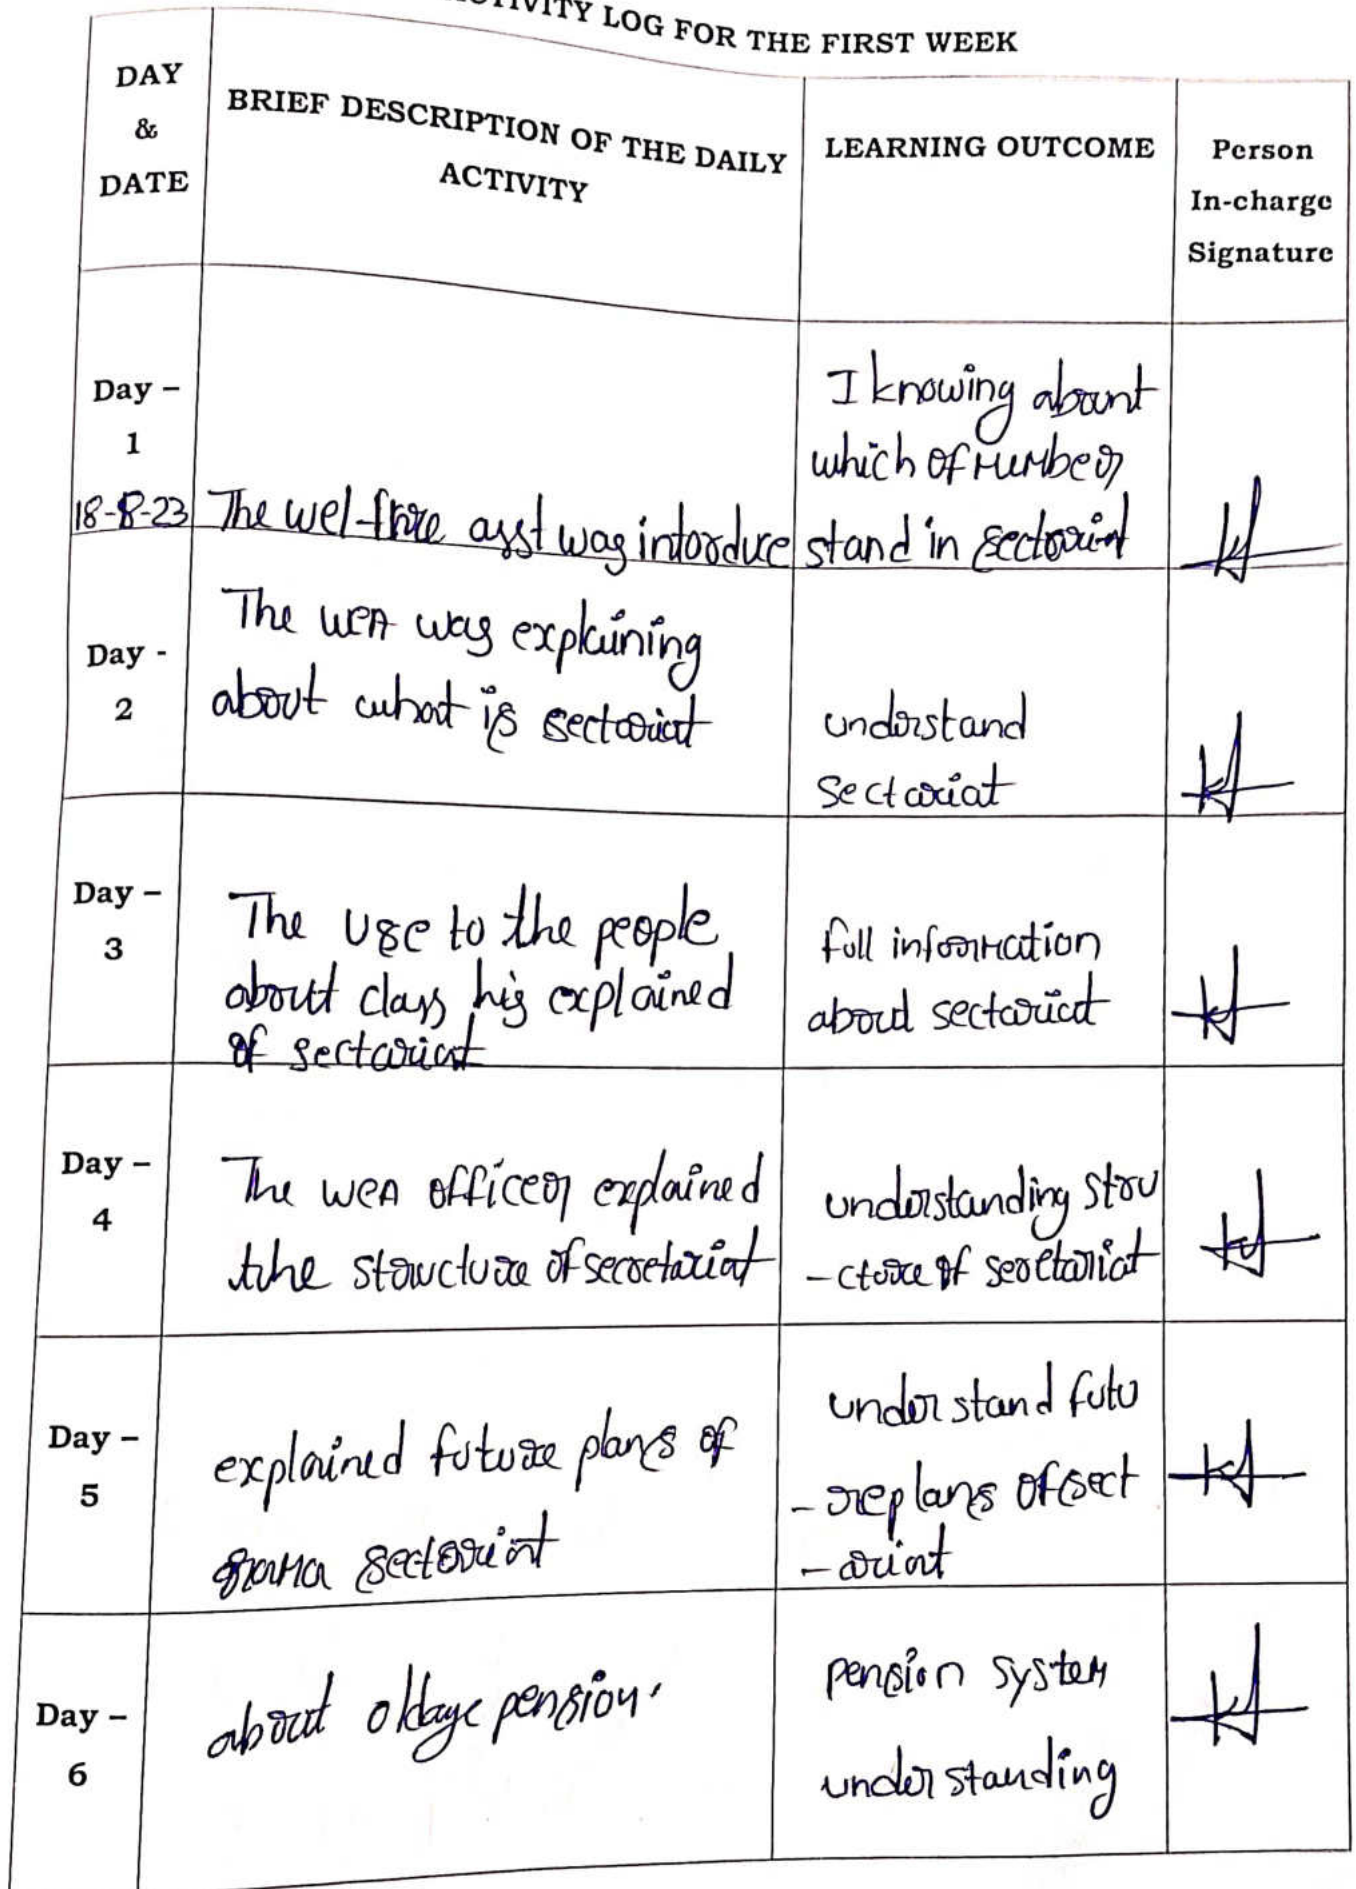 ACTIVITY LOG FOR THE FIRST WEEK
DAY
&
DATE
BRIEF DESCRIPTION OF THE DAILY
ACTIVITY
LEARNING OUTCOME
Person
In-charge
Signature
Day –
1
18-8-23
The wel-fare asst was intorduce
I knowing about
which of number
stand in sectoriat
Day -
2
The WEA was explaining
about what is sectoriat
understand
sectariat
Day –
3
The use to the people
about class his explained
of sectariat
full information
about sectariat
Day –
4
The WEA officer explained
the structure of secretariat
understanding stru
-cture of secretariat
Day –
5
explained future plans of
grama sectoriat
understand futu
-re plans of sect
-ariat
Day –
6
about oldage pension.
pension system
understanding